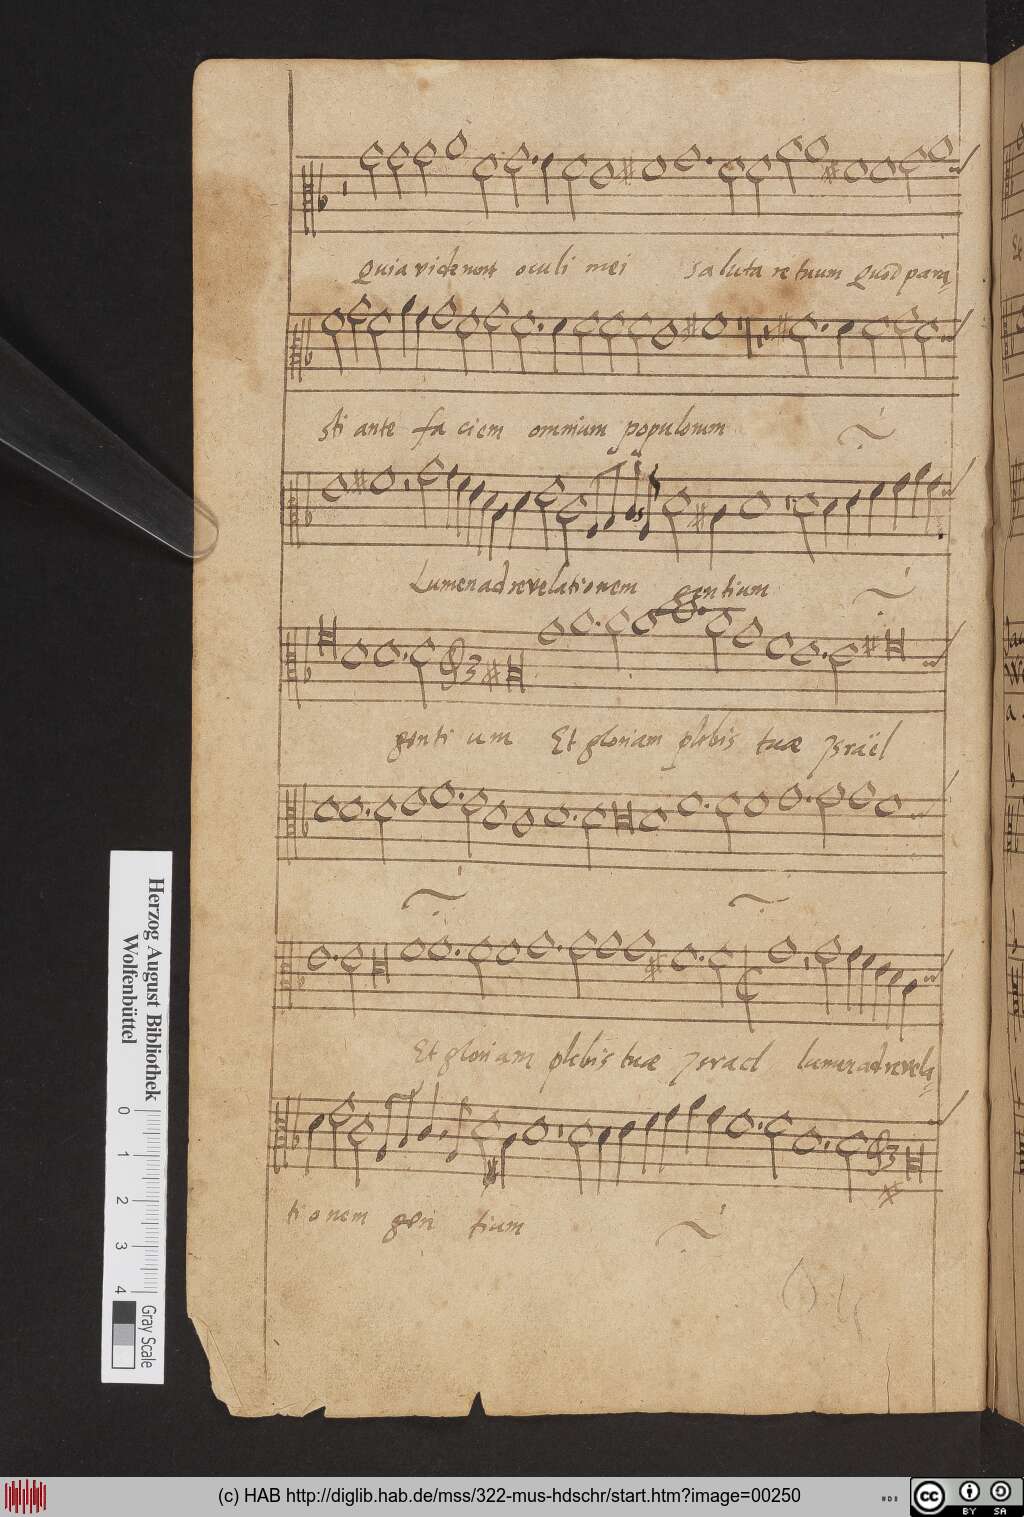 Quia viderunt oculi mei saluta re tuum Quod para
sti ante fa ciem omnium populorum
Lumen ad revelationem gentium
genti um Et gloriam plebis tuæ Israël
Et gloriam plebis tuæ Israel lumen ad revela
tionem gen tium
Herzog August Bibliothek
Wolfenbüttel
0 1 2 3 4
Gray Scale
(c) HAB http://diglib.hab.de/mss/322-mus-hdschr/start.htm?image=00250
cc BY SA